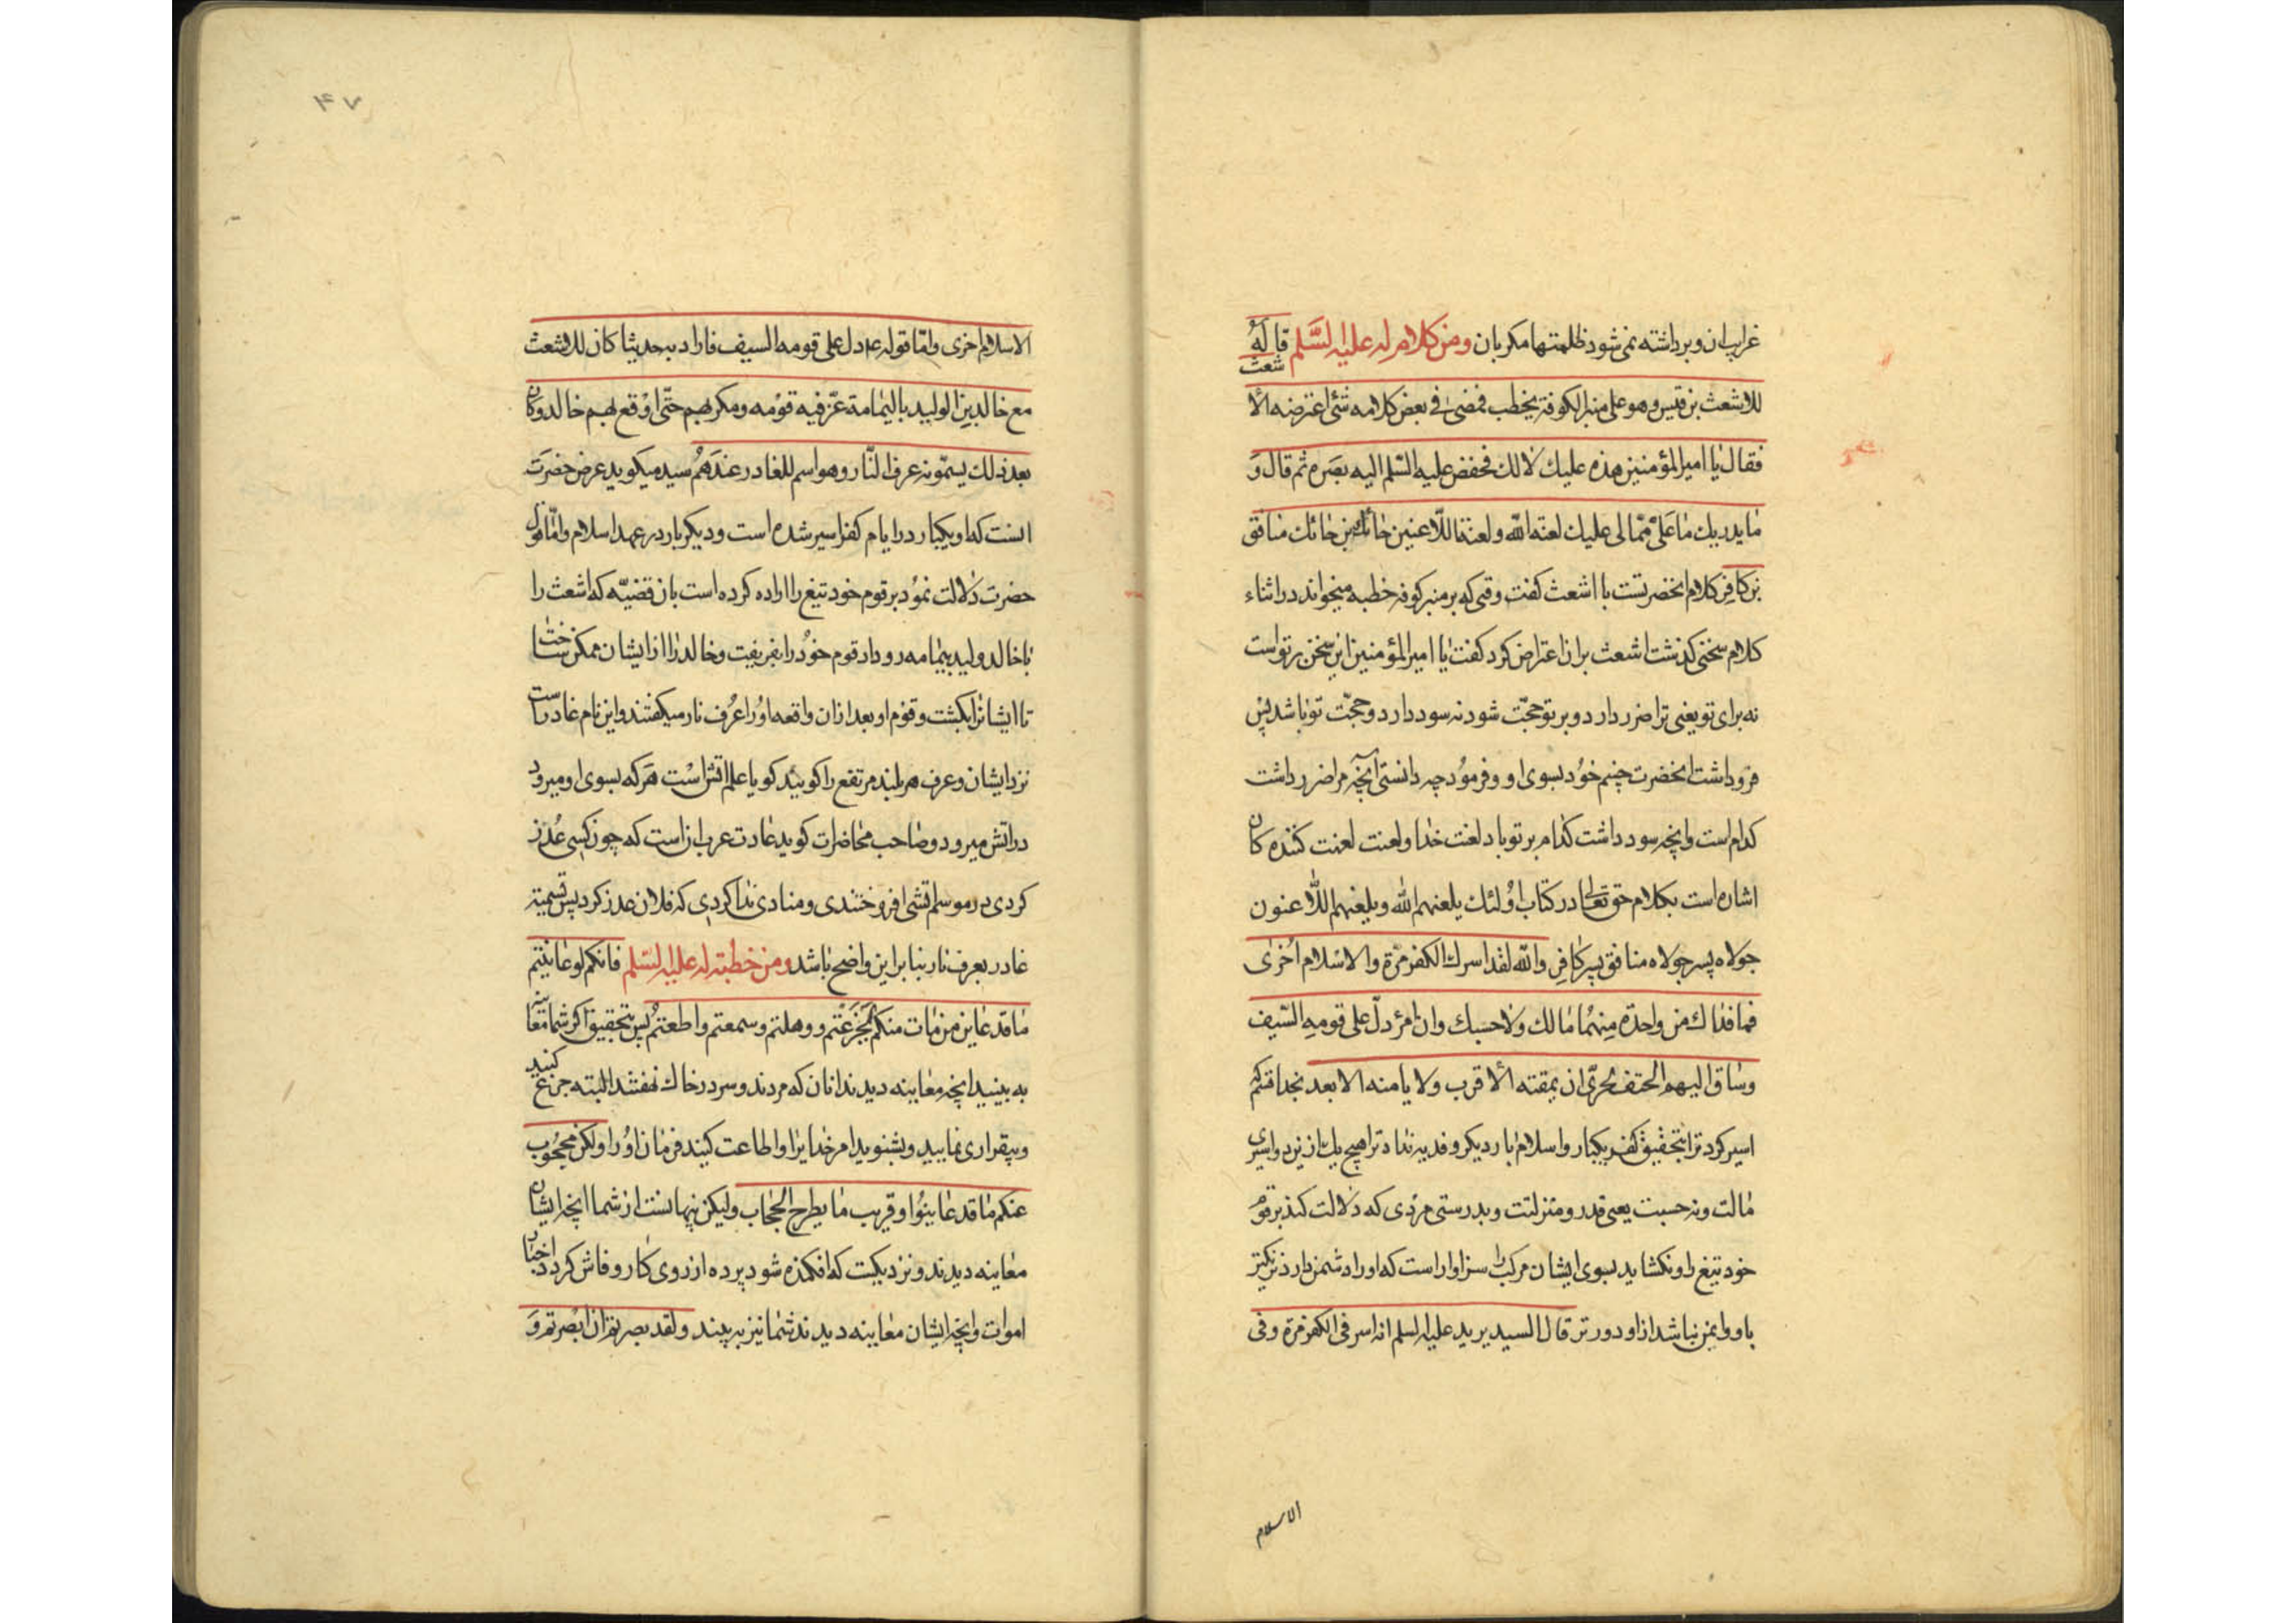 غرایب ان و برداشته نمی‌شود ظلمتها مکر بان ومن کلام له علیه السّلم قاله
للاشعث بن قیس وهو علی منبر الکوفة یخطب فمضی فی بعض کلامه شئ اعترضه الا
شعث
فقال یا امیر المؤمنین هذه علیک لا لک فخفض علیه السّلم الیه بصره ثم قال وَ
ما یدریک ما عَلَیَّ ممّا لی علیک لعنة اللّه ولعنة اللّاعنین حائک بن حائک منافق
بن کافر کلام انحضرتست با اشعث کفت وقتی که بر منبر کوفه خطبه میخواند در اثناء
کلام سخنی کذشت اشعث بران اعتراض کرد کفت یا امیر المؤمنین این سخن بر تو است
نه برای تو یعنی ترا ضرر دارد و بر تو حجّت شود نه سود دارد و حجّت تو باشد پس
فرو داشت انحضرت چشم خود بسوی او و فرمود چه دانستی آنچه مرا ضرر داشت
کدام است وانچه سود داشت کدام بر تو باد لعنت خدا و لعنت لعنت کننده کان
اشاره است بکلام حق تعالی در کتاب اولئک یلعنهم اللّه ویلعنهم اللّاعنون
جولاه پسر جولاه منافق پسر کافر واللّه لقد اسرک الکفر مرّة والاسلام اُخری
فما فداک من واحدة منهما مالک ولا حسبک وان امرءً دلّ علی قومه السّیف
وساق الیهم الحتف لحرّی ان یمقته الاقرب ولا یامنه الابعد بخدا قسم که
اسیر کرد ترا بتحقیق کفر یکبار واسلام بار دیکر و فدیه نداد ترا هیچ یک ازین دو اسیری
مالت و نه حسبت یعنی قدر و منزلتت و بدرستی مردی که دلالت کند بر قوم
خود تیغ را و بکشاید بسوی ایشان مرک را سزاوار است که او را دشمن دارد نزدیکتر
باو و ایمن نباشد از او دورتر قال السید یرید علیه السلم انه اسر فی الکفر مرة وفی
الاسلام
۴۷
الاسلام اخری وامّا قوله ع دل علی قومه السیف فاراد به حدیثا کان للاشعث
مع خالد بن الولید بالیمامة غرّ فیه قومه ومکر بهم حتّی اوقع بهم خالد وکان
بعد ذلک یسمّونه عرف النّار وهو اسم للغادر عندهم سید میکوید غرض حضرت
انست که او یکبار در ایام کفر اسیر شده است و دیکر بار در عهد اسلام وامّا قول
حضرت دلالت نمود بر قوم خود تیغ را اراده کرده است بان قضیّه که اشعث را
با خالد ولید بیمامه رو داد قوم خود را بفریفت و خالد را از ایشان ممکن ساخت
تا ایشانرا بکشت و قوم او بعد ازان واقعه او را عرف نار میکفتند و این نام غادر است
نزد ایشان و عرف هر بلند مرتفع را کویند کویا علم اتش است هر که بسوی او میرود
در اتش میرود و صاحب محاضرات کوید عادت عرب انست که چون کسی غدر
کردی در موسم اتشی افروختندی و منادی ندا کردی که فلان غدر کرد پس تسمیه
غادر بعرف نار بنا براین واضح باشد ومن خطبة له علیه السّلم فانکم لو عاینتم
ما قد عاین من مات منکم لجزعتم ووهلتم وسمعتم واطعتم پس بتحقیق اکر شما معاینه
به بینید انچه معاینه دیدند انان که مردند و سر در خاک نهفتند البته جزع کنید
و بیقراری نمایید و بشنوید امر خدایرا و اطاعت کنید فرمان او را ولکن محجوب
عنکم ما قد عاینوا وقریب ما یطرح الحجاب ولیکن پنهانست از شما انچه ایشان
معاینه دیدند و نزدیکست که افکنده شود پرده از روی کار و فاش کردد اخبار
اموات وانچه ایشان معاینه دیدند شما نیز به بینید ولقد بصرتم ان ابصرتم وَ